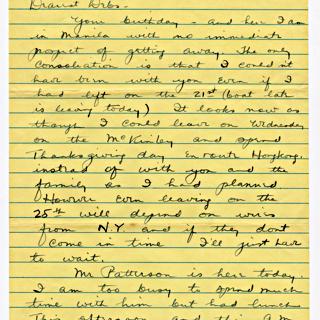 Dearest Debs.
Your birthday - and here I am
in Manila with no immediate
prospect of getting away. The only
consolation is that I couldn't
have been with you even if I
had left on the 21st (boat late
is leaving today) It looks now as
though I could leave on Wednesday
on the McKinley and spend
Thanksgiving day enroute Hongkong.
instead of with you and the
family as I had planned
However even leaving on the
25th will depend on wires
from N.Y. and if they dont
come in time I'll just have
to wait.
Mr Patterson is here today.
I am too busy to spend much
time with him but had lunch
This afternoon and this A.M.